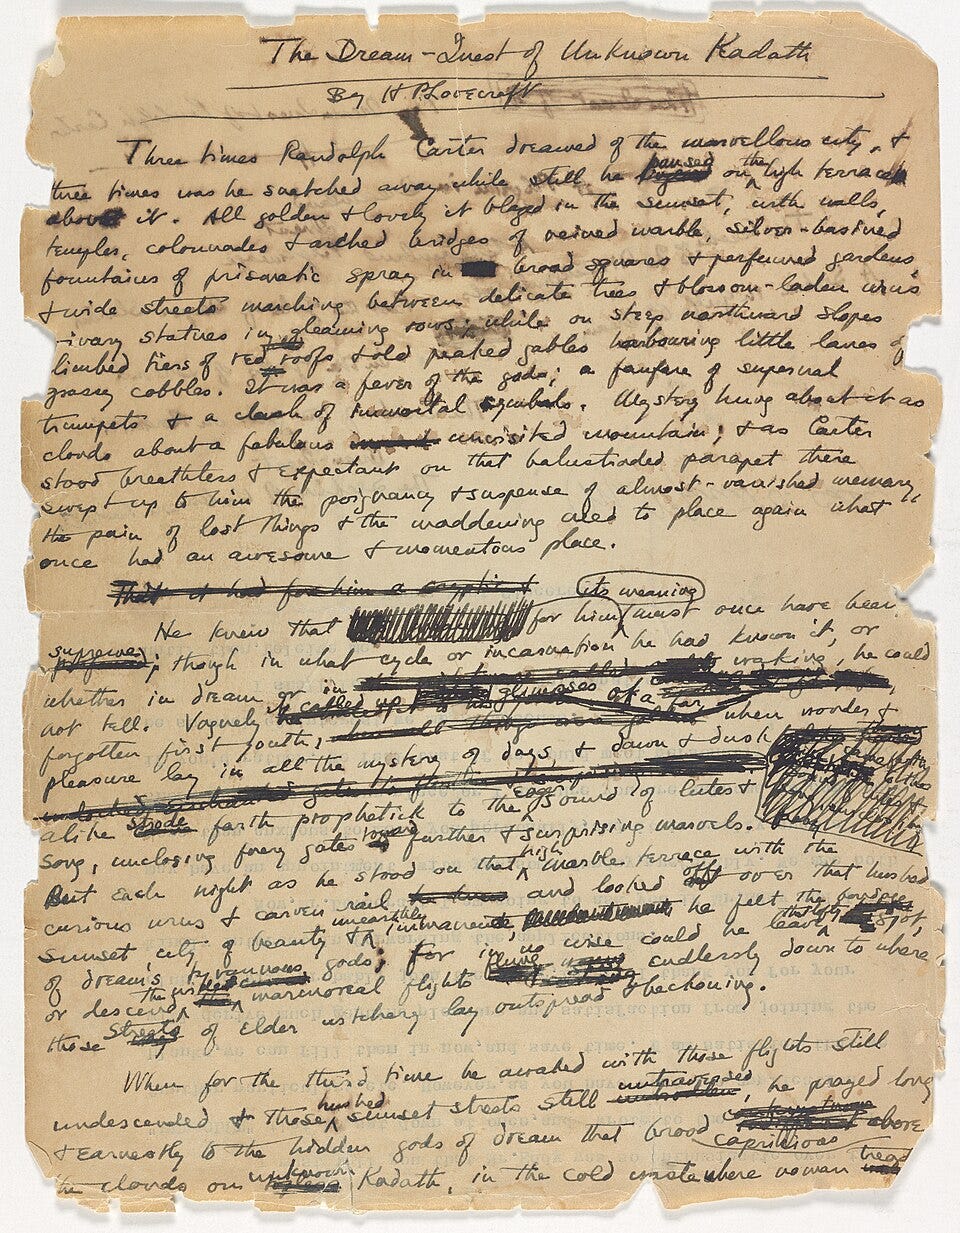 The Dream-Quest of Unknown Kadath
By H P Lovecraft
Three times Randolph Carter dreamed of the marvellous city, &
three times was he snatched away while still he paused on the high terrace
above it. All golden & lovely it blazed in the sunset, with walls,
temples, colonnades & arched bridges of veined marble, silver-basined
fountains of prismatic spray in broad squares & perfumed gardens,
& wide streets marching between delicate trees & blossom-laden urns
& ivory statues in gleaming rows; while on steep northward slopes
climbed tiers of red roofs & old peaked gables harbouring little lanes of
grassy cobbles. It was a fever of the gods; a fanfare of supernal
trumpets & a clash of immortal cymbals. Mystery hung about it as
clouds about a fabulous unvisited mountain; & as Carter
stood breathless & expectant on that balustraded parapet there
swept up to him the poignancy & suspense of almost-vanished memory,
the pain of lost things & the maddening need to place again what
once had an awesome & momentous place.
That it had for him a
He knew that for him its meaning must once have been
supreme; though in what cycle or incarnation he had known it, or
whether in dream or in waking, he could
not tell. Vaguely it called up glimpses of a far,
forgotten first youth, when wonder &
pleasure lay in all the mystery of days, & dawn & dusk
alike strode forth prophetick to the eager sound of lutes &
song, unclosing faery gates toward further & surprising marvels.
But each night as he stood on that high marble terrace with the
curious urns & carven rail and looked off over that hushed
sunset city of beauty & unearthly immanence, he felt the bondage
of dream's tyrannous gods; for in no wise could he leave that lofty spot,
or descend the wide marmoreal flights flung endlessly down to where
those streets of elder witchery lay outspread & beckoning.
When for the third time he awaked with those flights still
undescended & those hushed sunset streets still untraversed, he prayed long
& earnestly to the hidden gods of dream that brood capricious above
the clouds on unknown Kadath, in the cold waste where no man treads